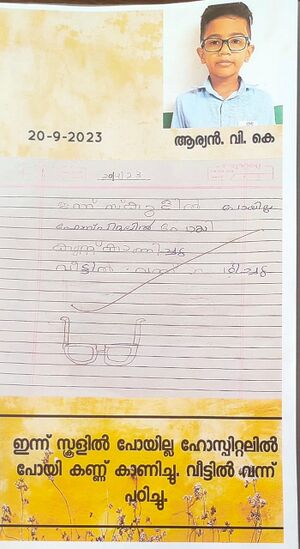 20-9-2023
ആര്യൻ. വി. കെ
20/9/23
ഇന്ന് സ്കൂളിൽ പോയില്ല
ഹോസ്പിറ്റലിൽ പോയി
കണ്ണ് കാണിച്ചു
വീട്ടിൽ വന്ന് പഠിച്ചു
ഇന്ന് സ്കൂളിൽ പോയില്ല ഹോസ്പിറ്റലിൽ
പോയി കണ്ണ് കാണിച്ചു. വീട്ടിൽ വന്ന്
പഠിച്ചു.